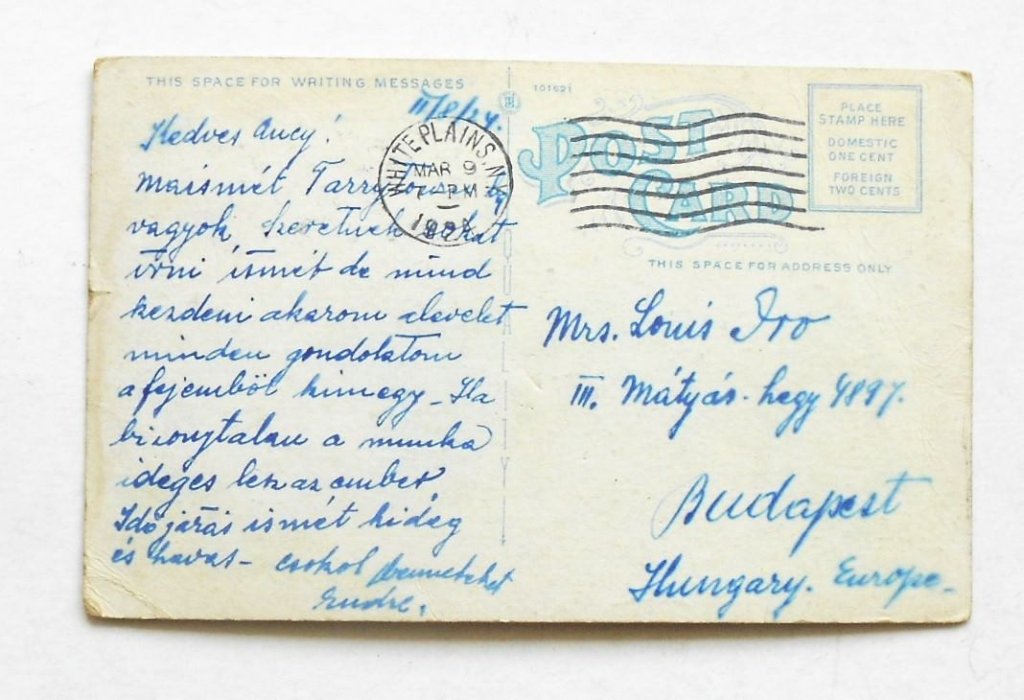 THIS SPACE FOR WRITING MESSAGES
Kedves Ancy!
WHITE PLAINS, N.Y.
MAR 9
7-PM
Maismét
vagyok. Szeretnék
írni ismét de mind
kezdeni akarom alevelet
minden gondolatom
afejemből kimegy - Ha
bizonytalan a munka
ideges lesz az ember
Időjárás ismét hideg
és havas - csokol benneteket
Endre.
101621
POST
CARD
PLACE
STAMP HERE
DOMESTIC
ONE CENT
FOREIGN
TWO CENTS
THIS SPACE FOR ADDRESS ONLY
Mrs. Louis Ivo
III. Mátyás-hegy 4897.
Budapest
Hungary. Europe-